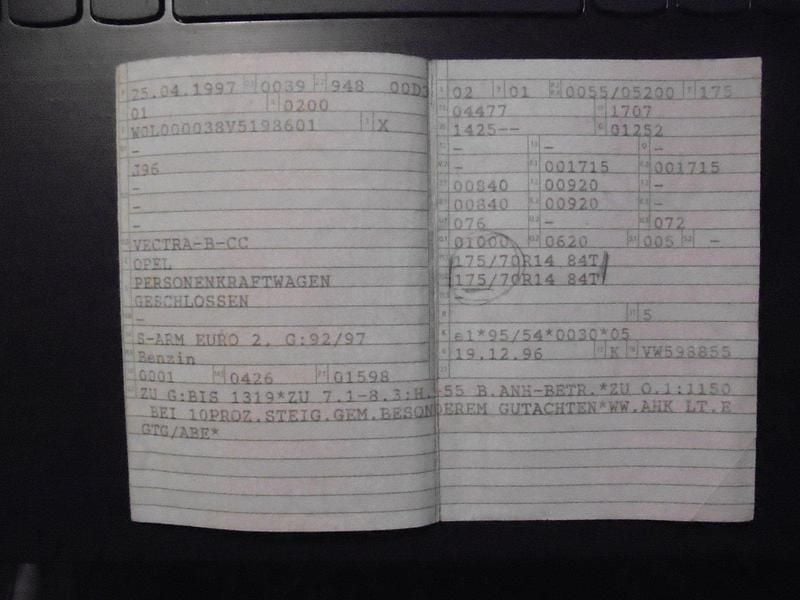 25.04.1997 0039 948 00D3
01 0200
W0L000038V5198601 X
-
J96
-
-
-
VECTRA-B-CC
OPEL
PERSONENKRAFTWAGEN
GESCHLOSSEN
-
S-ARM EURO 2, G:92/97
Benzin
0001 0426 01598
ZU G:BIS 1319*ZU 7.1-8.3:H.-55 B.ANH-BETR.*ZU O.1:1150
BEI 10PROZ.STEIG.GEM.BESONDEREM GUTACHTEN*WW.AHK LT.E
GTG/ABE*
02 01 0055/05200 175
04477 1707
1425-- 01252
- - -
- 001715 001715
00840 00920 -
00840 00920 -
076 - 072
01000 0620 005 -
175/70R14 84T
175/70R14 84T
-
5
e1*95/54*0030*05
19.12.96 K VW598855